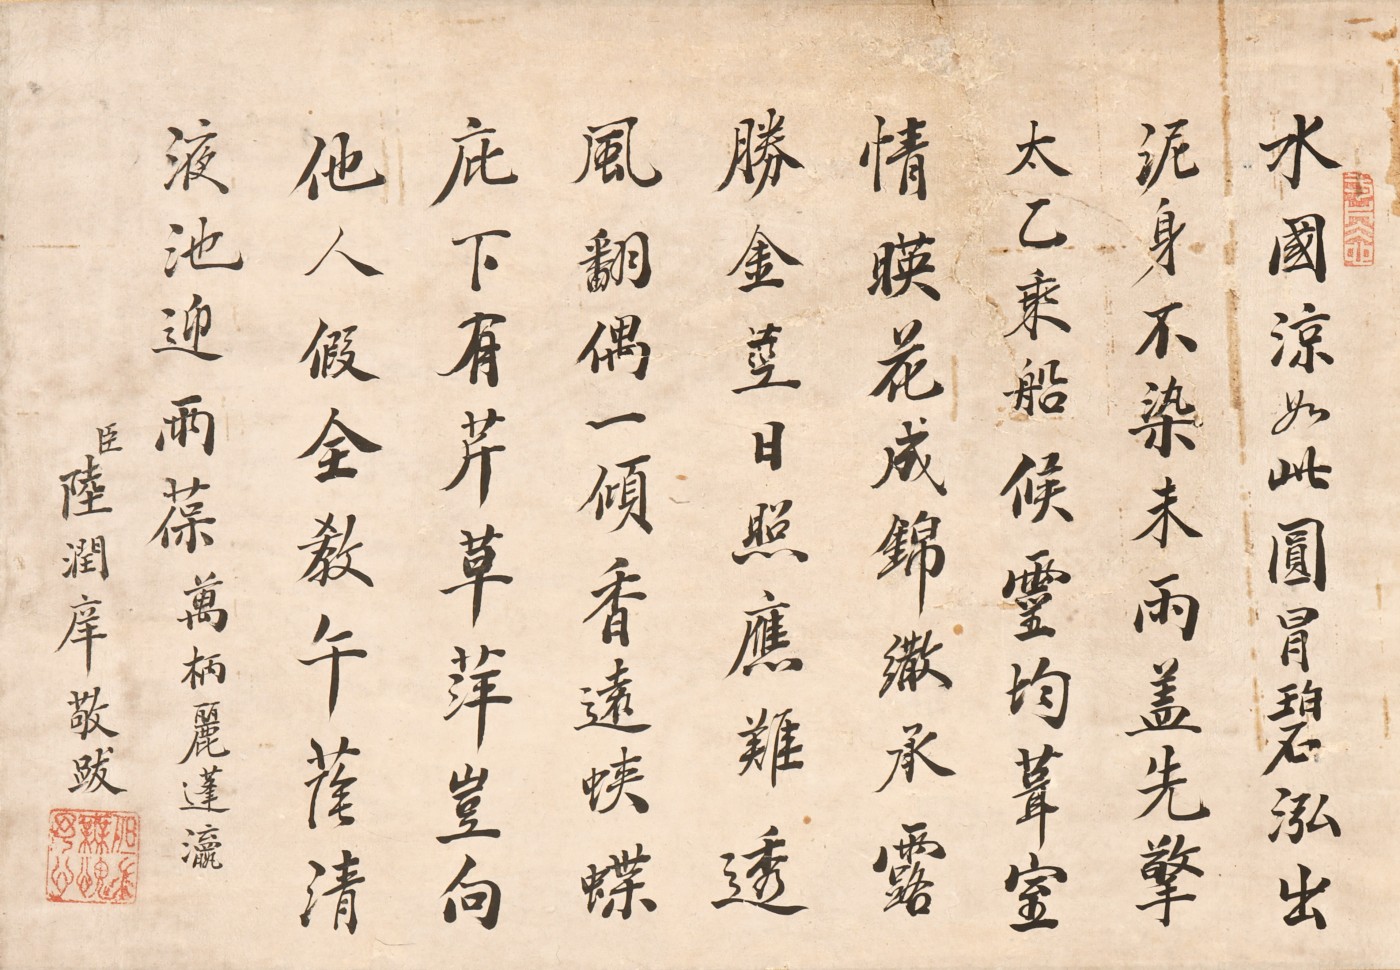 水國涼如此圓冒碧泓出
泥身不染未雨蓋先擎
太乙乘船候靈均葺室
情暎花成錦繖承露
勝金莖日照應難透
風翻偶一傾香遠蛺蝶
庇下有芹草萍豈向
他人假全教午蔭清
液池迎雨葆萬柄麗蓬瀛
臣陸潤庠敬跋